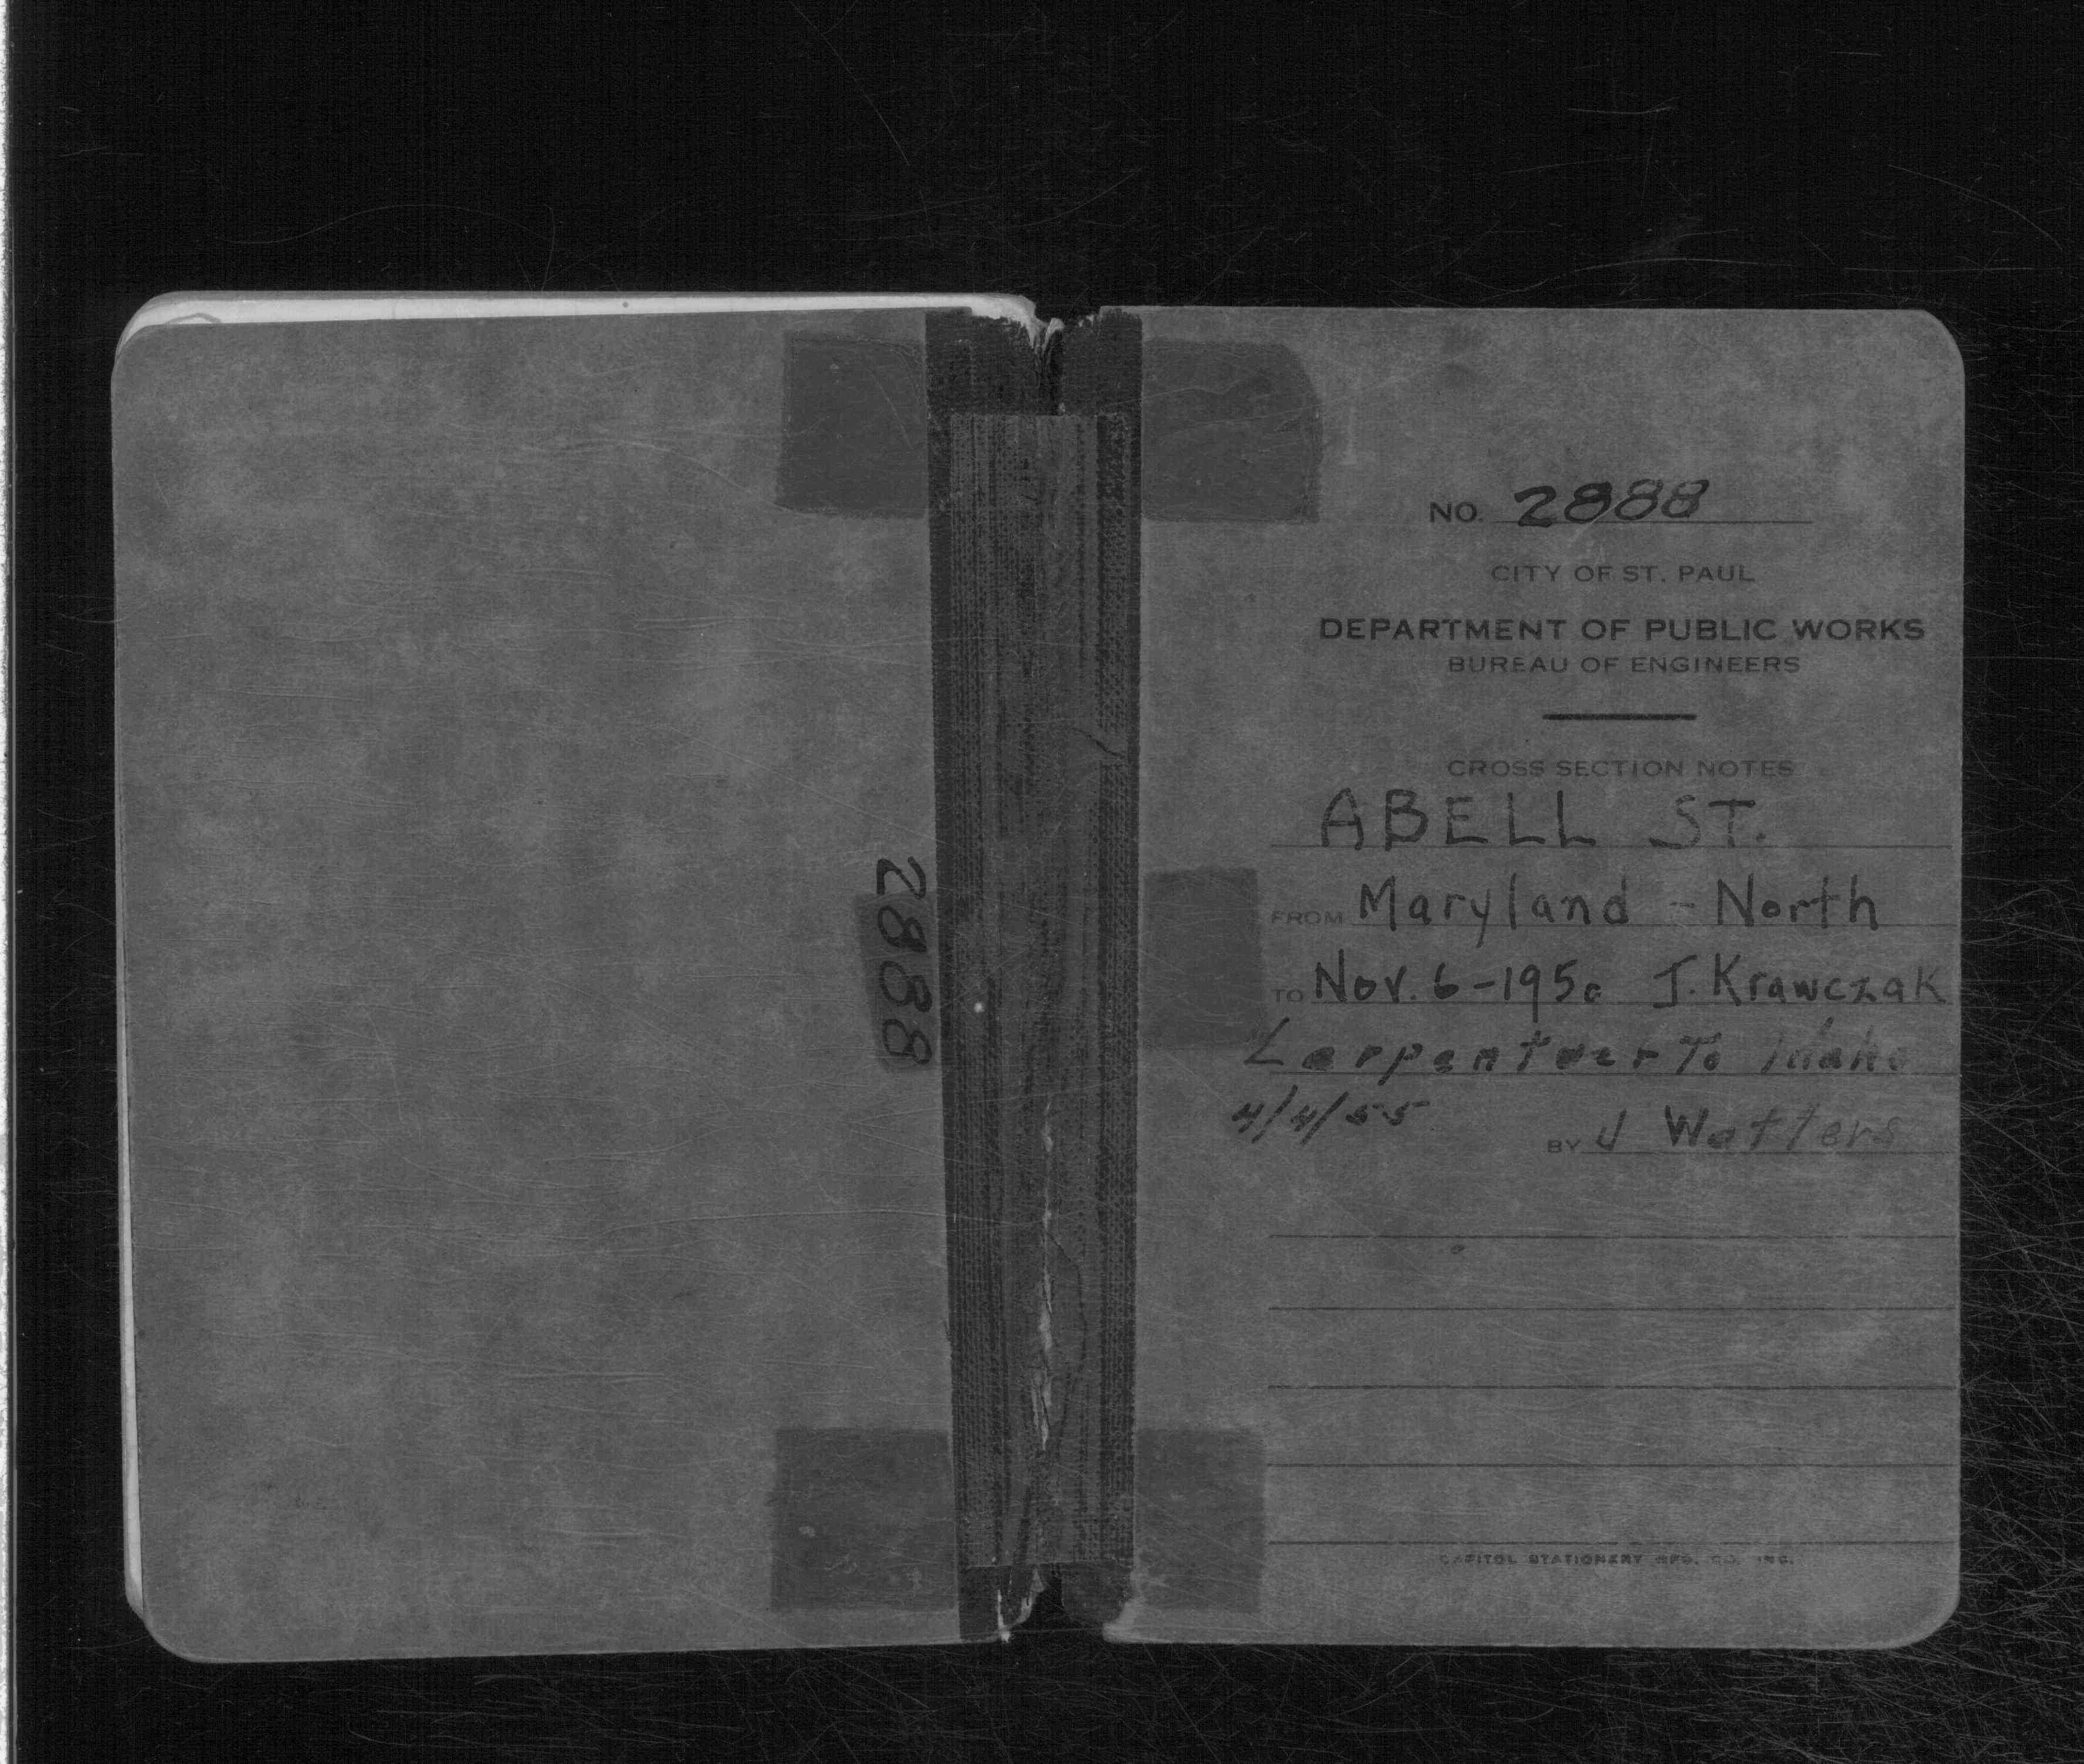 2888
NO. 2888
CITY OF ST. PAUL
DEPARTMENT OF PUBLIC WORKS
BUREAU OF ENGINEERS
CROSS SECTION NOTES
ABELL ST.
FROM Maryland - North
TO Nov. 6-1950 J. Krawczak
Larpenteur To Idaho
4/4/55 BY J Watters
CAPITOL STATIONERY MFG. CO. INC.